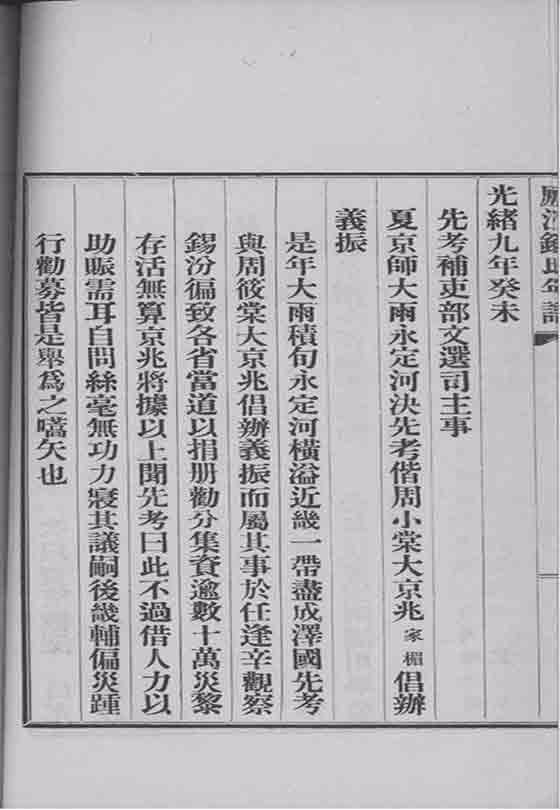 光緒九年癸未
先考補吏部文選司主事
夏京師大雨永定河決先考偕周小棠大京兆家楣倡辦
義振
是年大雨積旬永定河橫溢近畿一帶盡成澤國先考
與周筱棠大京兆倡辦義振而屬其事於任逢辛觀察
錫汾徧致各省當道以捐册勸分集資逾數十萬災黎
存活無算京兆將據以上聞先考曰此不過借人力以
助賑需耳自問絲毫無功力寢其議嗣後畿輔偏災踵
行勸募皆是舉爲之嚆矢也